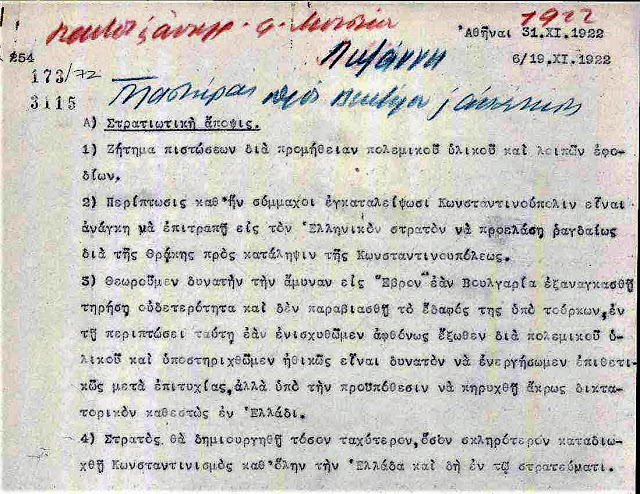 1922
Ἀθῆναι 31.XI.1922
254
6/19.XI.1922
173/72
3115
Λωζάννη
Πλαστήρας πρὸς
Α) Στρατιωτικὴ ἄποψις.
1) Ζήτημα πιστώσεων διὰ προμήθειαν πολεμικοῦ ὑλικοῦ καὶ λοιπῶν ἐφο-
δίων.
2) Περίπτωσις καθ' ἣν σύμμαχοι ἐγκαταλείψωσι Κωνσταντινούπολιν εἶναι
ἀνάγκη νὰ ἐπιτραπῇ εἰς τὸν Ἑλληνικὸν στρατὸν νὰ προελάσῃ ραγδαίως
διὰ τῆς Θράκης πρὸς κατάληψιν τῆς Κωνσταντινουπόλεως.
3) Θεωροῦμεν δυνατὴν τὴν ἄμυναν εἰς "Εβρον" ἐὰν Βουλγαρία ἐξαναγκασθῇ
τηρήσῃ οὐδετερότητα καὶ δὲν παραβιασθῇ τὸ ἔδαφός της ὑπὸ τούρκων, ἐν
τῇ περιπτώσει ταύτῃ ἐὰν ἐνισχυθῶμεν ἀφθόνως ἔξωθεν διὰ πολεμικοῦ ὑ-
λικοῦ καὶ ὑποστηριχθῶμεν ἠθικῶς εἶναι δυνατὸν νὰ ἐνεργήσωμεν ἐπιθετι-
κῶς μετὰ ἐπιτυχίας, ἀλλὰ ὑπὸ τὴν προϋπόθεσιν νὰ κηρυχθῇ ἄκρως δικτα-
τορικὸν καθεστὼς ἐν Ἑλλάδι.
4) Στρατὸς θὰ δημιουργηθῇ τόσον ταχύτερον, ὅσον σκληρότερον καταδιω-
χθῇ Κωνσταντινισμὸς καθ' ὅλην τὴν Ἑλλάδα καὶ δὴ ἐν τῷ στρατεύματι.